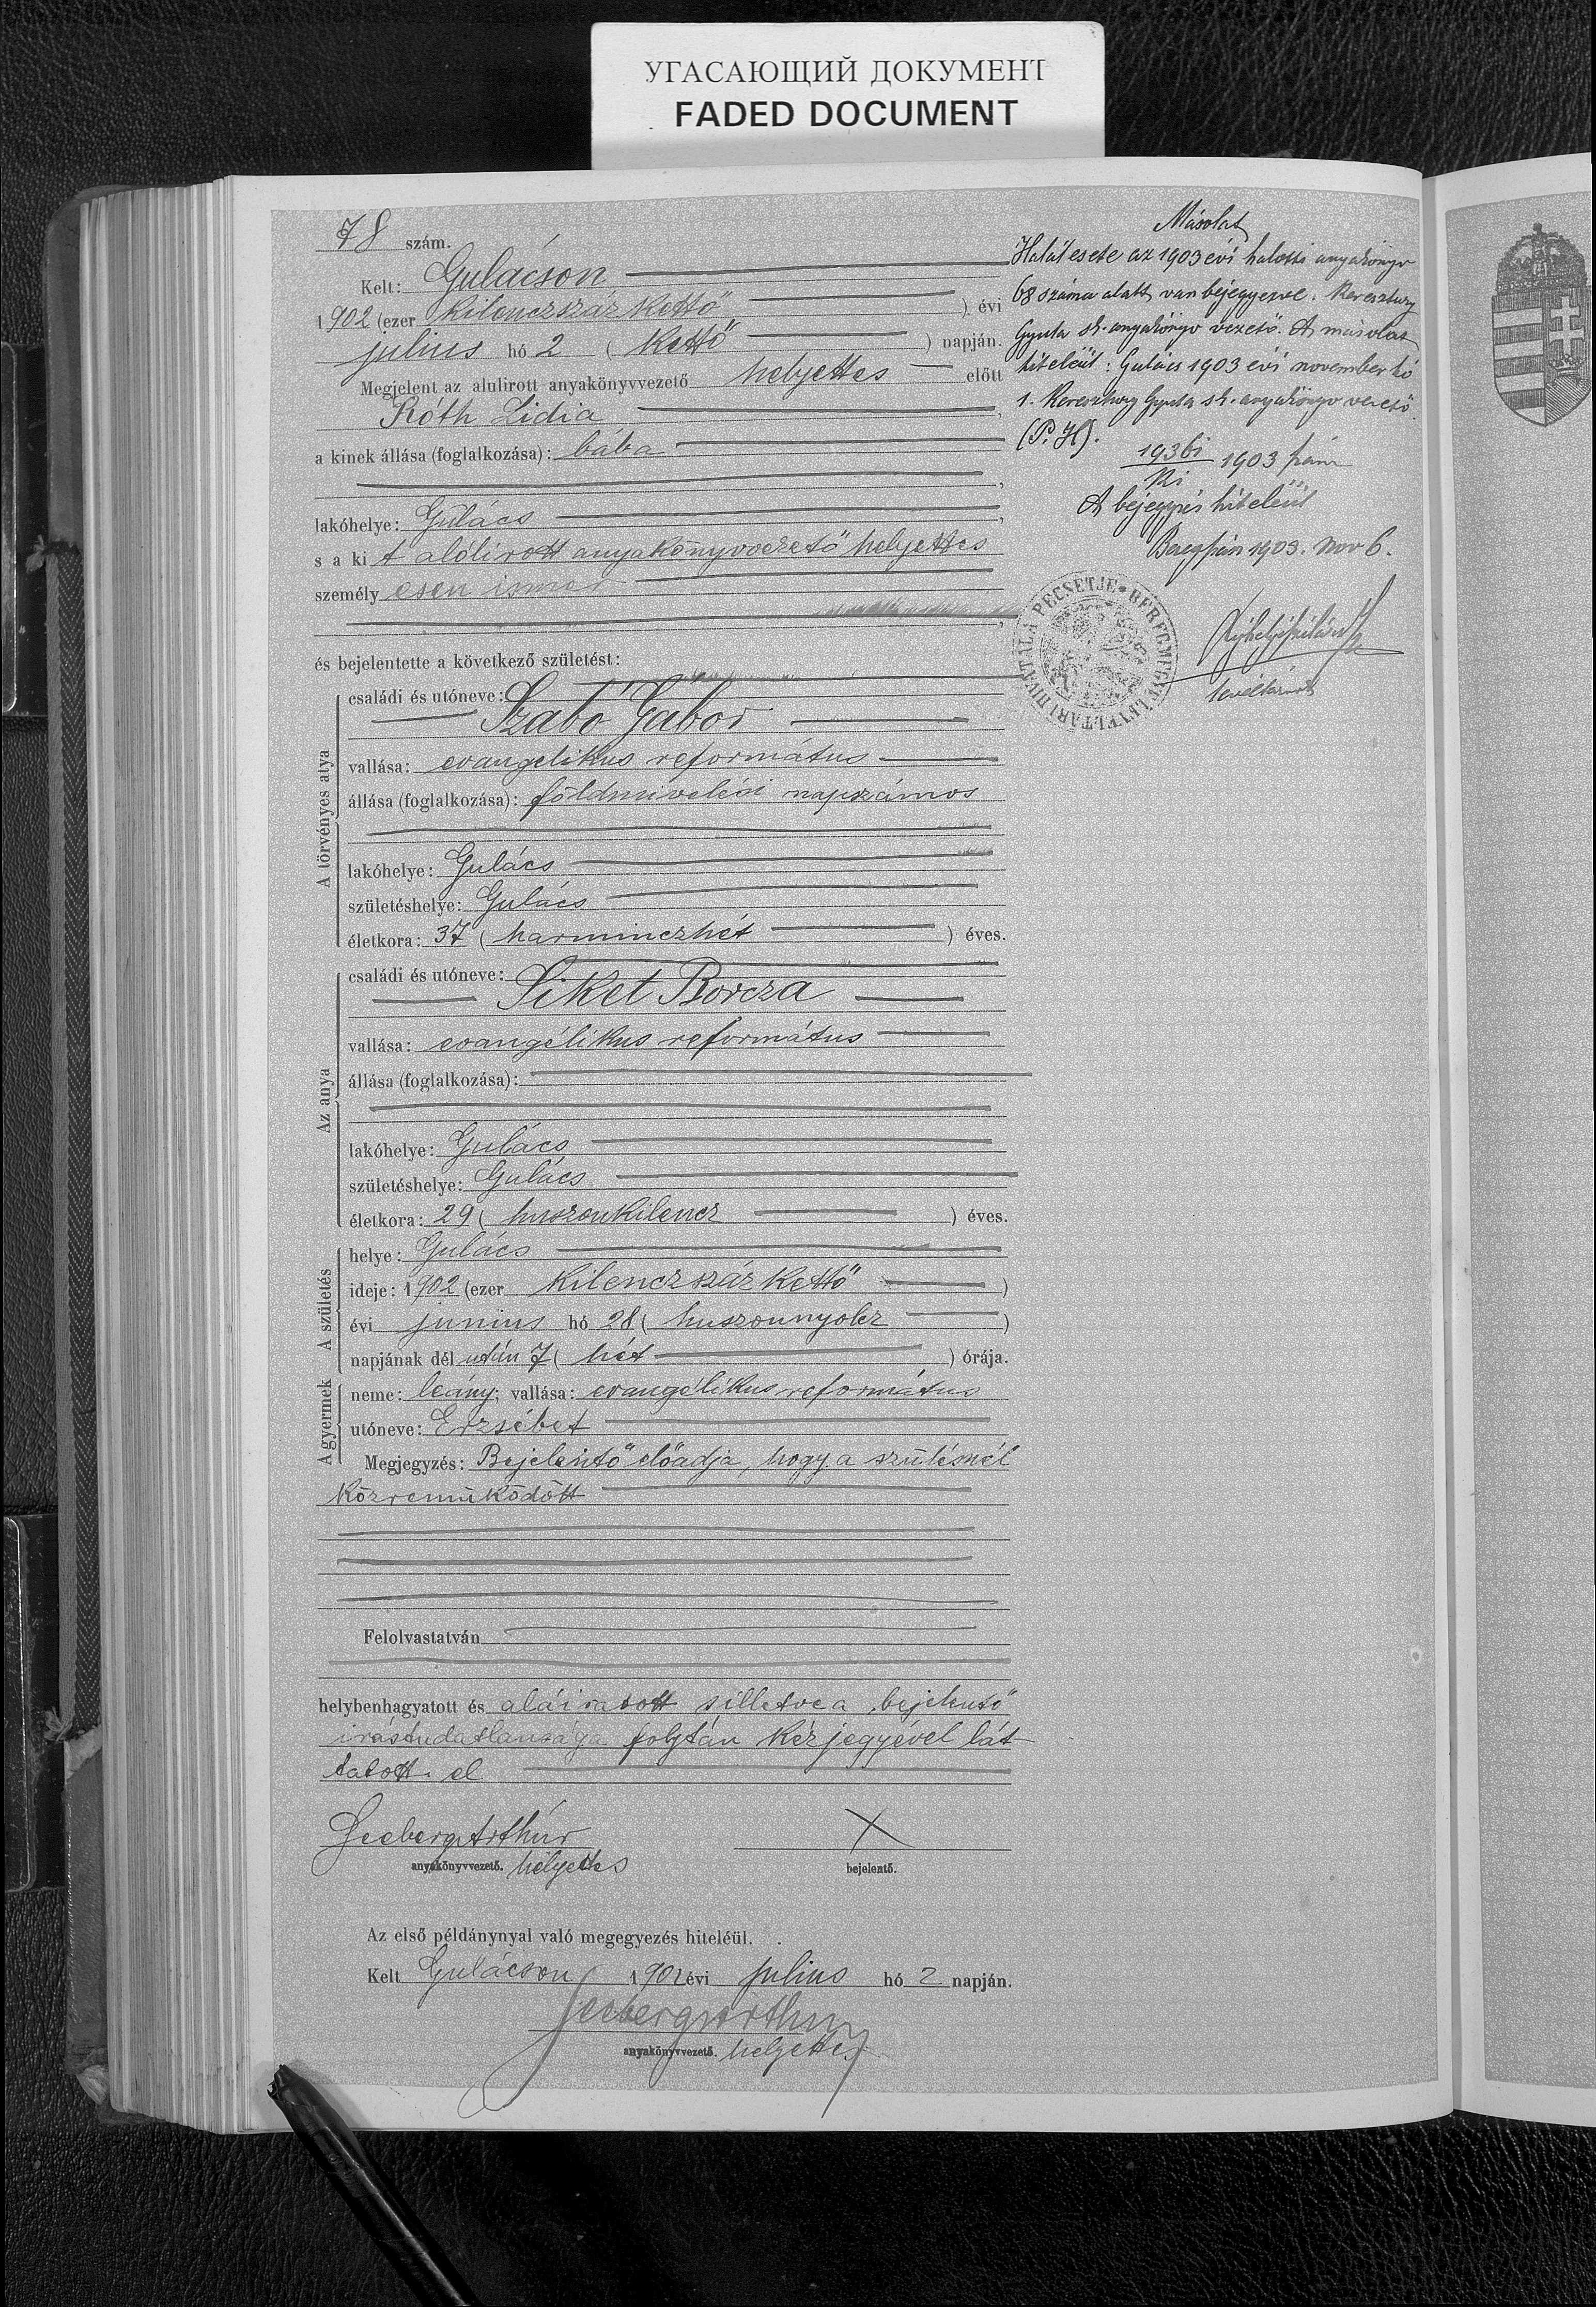 УГАСАЮЩИЙ ДОКУМЕНТ
FADED DOCUMENT
78 szám.
Kelt: Gulácson
1902 (ezer kilenczszáz kettő) évi
julius hó 2 (kettő) napján.
Megjelent az alulirott anyakönyvvezető helyettes előtt
Róth Lidia,
a kinek állása (foglalkozása): bába
lakóhelye: Gulács,
s a kit alólirott anyakönyvvezető helyettes
személyesen ismer
és bejelentette a következő születést:
A törvényes atya
családi és utóneve:
Szabó Gábor
vallása: evangelikus református
állása (foglalkozása): földmivelési napszámos
lakóhelye: Gulács
születéshelye: Gulács
életkora: 37 (harminczhét) éves.
Az anya
családi és utóneve:
Siket Borcza
vallása: evangélikus református
állása (foglalkozása):
lakóhelye: Gulács
születéshelye: Gulács
életkora: 29 (huszonkilencz) éves.
A születés
helye: Gulács
ideje: 1902 (ezer kilenczszáz kettő)
évi junius hó 28 (huszonnyolcz)
napjának dél után 7 (hét) órája.
A gyermek
neme: leány; vallása: evangélikus református
utóneve: Erzsébet
Megjegyzés: Bejelentő előadja, hogy a szülésnél
közremüködött
Felolvastatván
helybenhagyatott és aláiratott silletve a bejelentő
irástudatlansága folytán kézjegyével lát
tatott el
Seeberg Arthúr
anyakönyvvezető. helyettes
X
bejelentő.
Az első példánynyal való megegyezés hiteléül.
Kelt Gulácson 1902 évi julius hó 2 napján.
Seeberg Arthur
anyakönyvvezető. helyettes
Másolat
Halálesete az 1903 évi halotti anyakönyv
68 száma alatt van bejegyezve. Keresztury
Gyula sk. anyakönyv vezető. A másolat
hiteleül: Gulács 1903 évi november hó
1. Keresztury Gyula sk. anyakönyv vezető.
(P. H).
1903
A bejegyzés hiteleül
Beregszász 1903. Nov 6.
levéltárnok